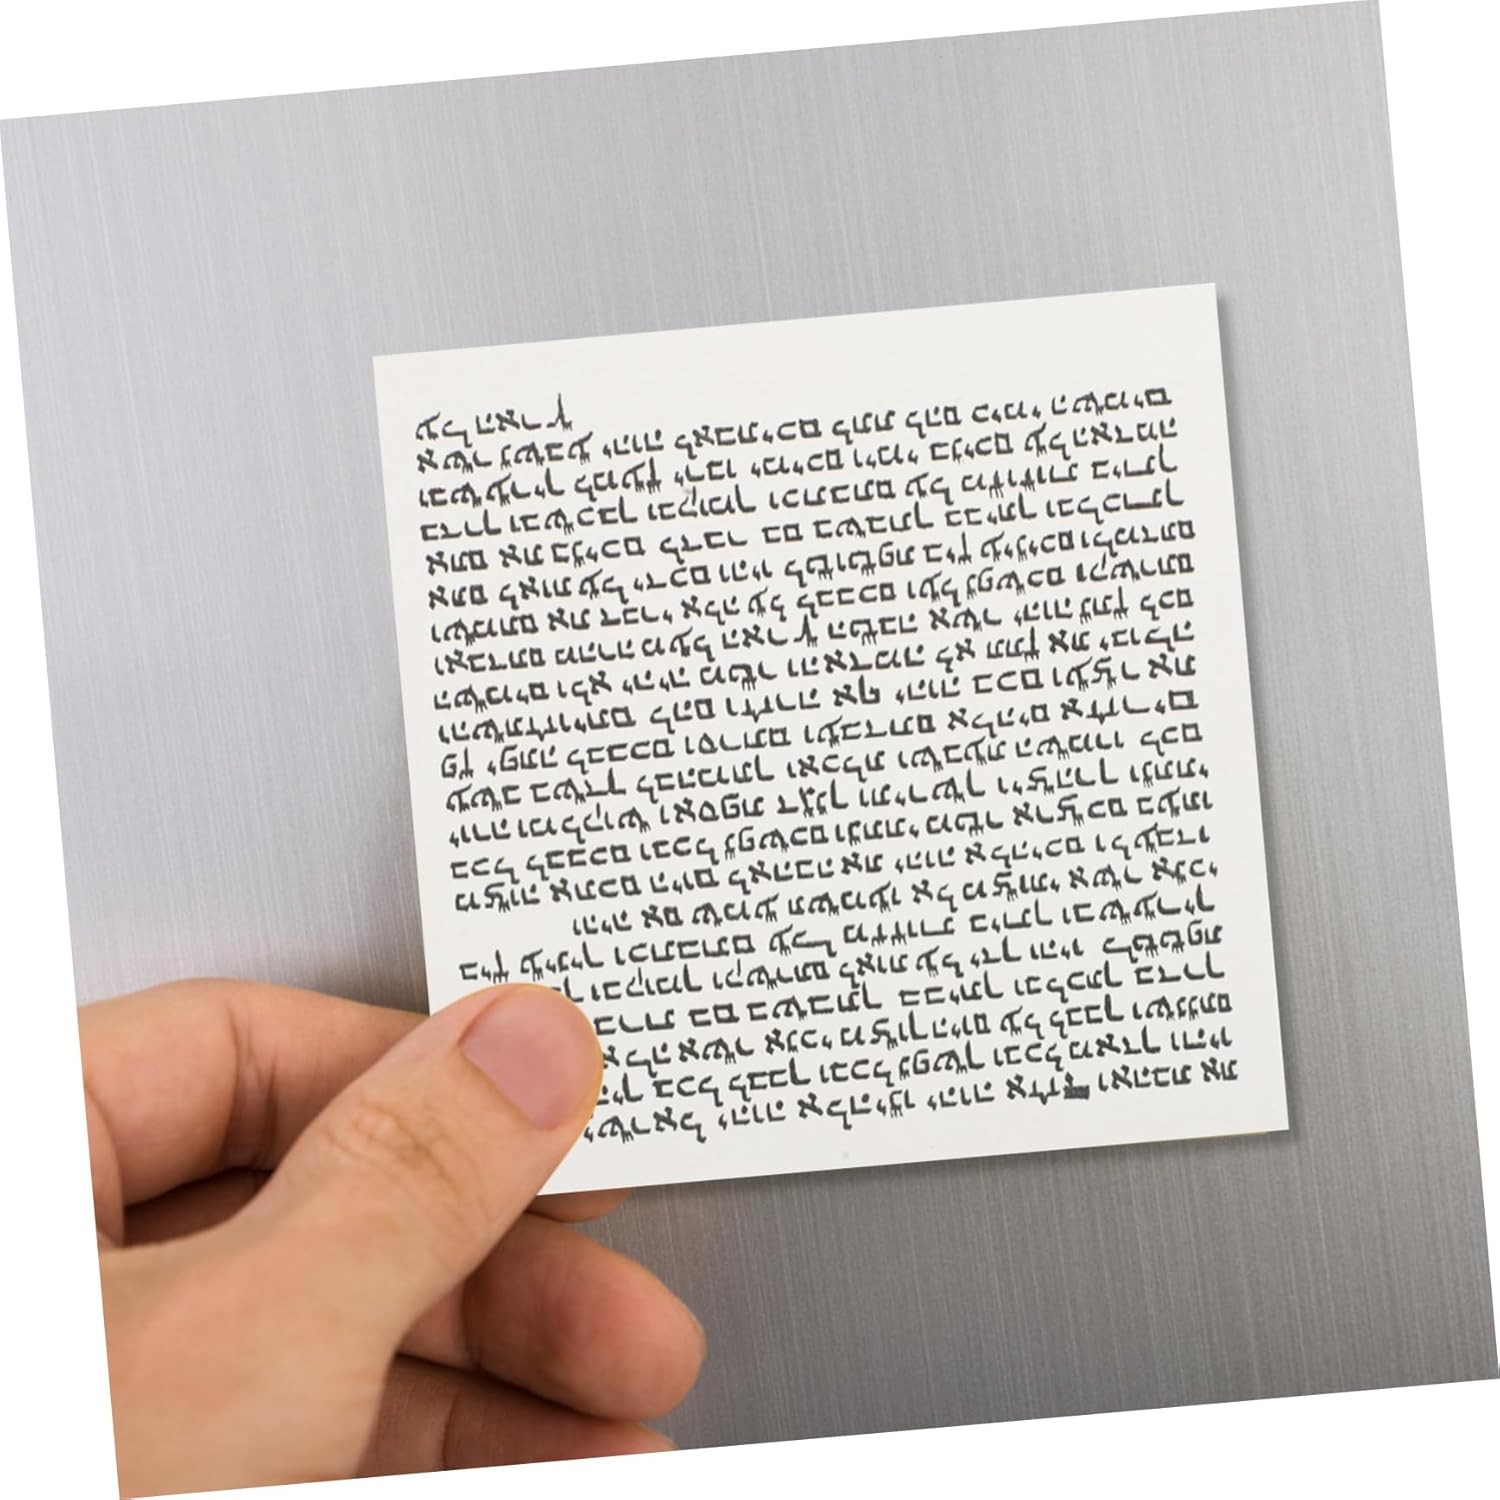 ישראל יהוה אלהינו יהוה אחד ואהבת את
בכל לבבך ובכל נפשך ובכל מאדך והיו
האלה אשר אנכי מצוך היום על לבבך ושננתם
בם בשבתך בביתך ובלכתך בדרך
ובקומך וקשרתם לאות על ידך והיו לטטפת
בין עיניך וכתבתם על מזזות ביתך ובשעריך
והיה אם שמע תשמעו אל מצותי אשר אנכי
מצוה אתכם היום לאהבה את יהוה אלהיכם ולעבדו
בכל לבבכם ובכל נפשכם ונתתי מטר ארצכם בעתו
יורה ומלקוש ואספת דגנך ותירשך ויצהרך ונתתי
עשב בשדך לבהמתך ואכלת ושבעת השמרו לכם
פן יפתה לבבכם וסרתם ועבדתם אלהים אחרים
והשתחויתם להם וחרה אף יהוה בכם ועצר את
השמים ולא יהיה מטר והאדמה לא תתן את יבולה
ואבדתם מהרה מעל הארץ הטבה אשר יהוה נתן לכם
ושמתם את דברי אלה על לבבכם ועל נפשכם וקשרתם
אתם לאות על ידכם והיו לטוטפת בין עיניכם ולמדתם
אתם את בניכם לדבר בם בשבתך בביתך ובלכתך
בדרך ובשכבך ובקומך וכתבתם על מזוזות ביתך
ובשעריך למען ירבו ימיכם וימי בניכם על האדמה
אשר נשבע יהוה לאבתיכם לתת להם כימי השמים
על הארץ